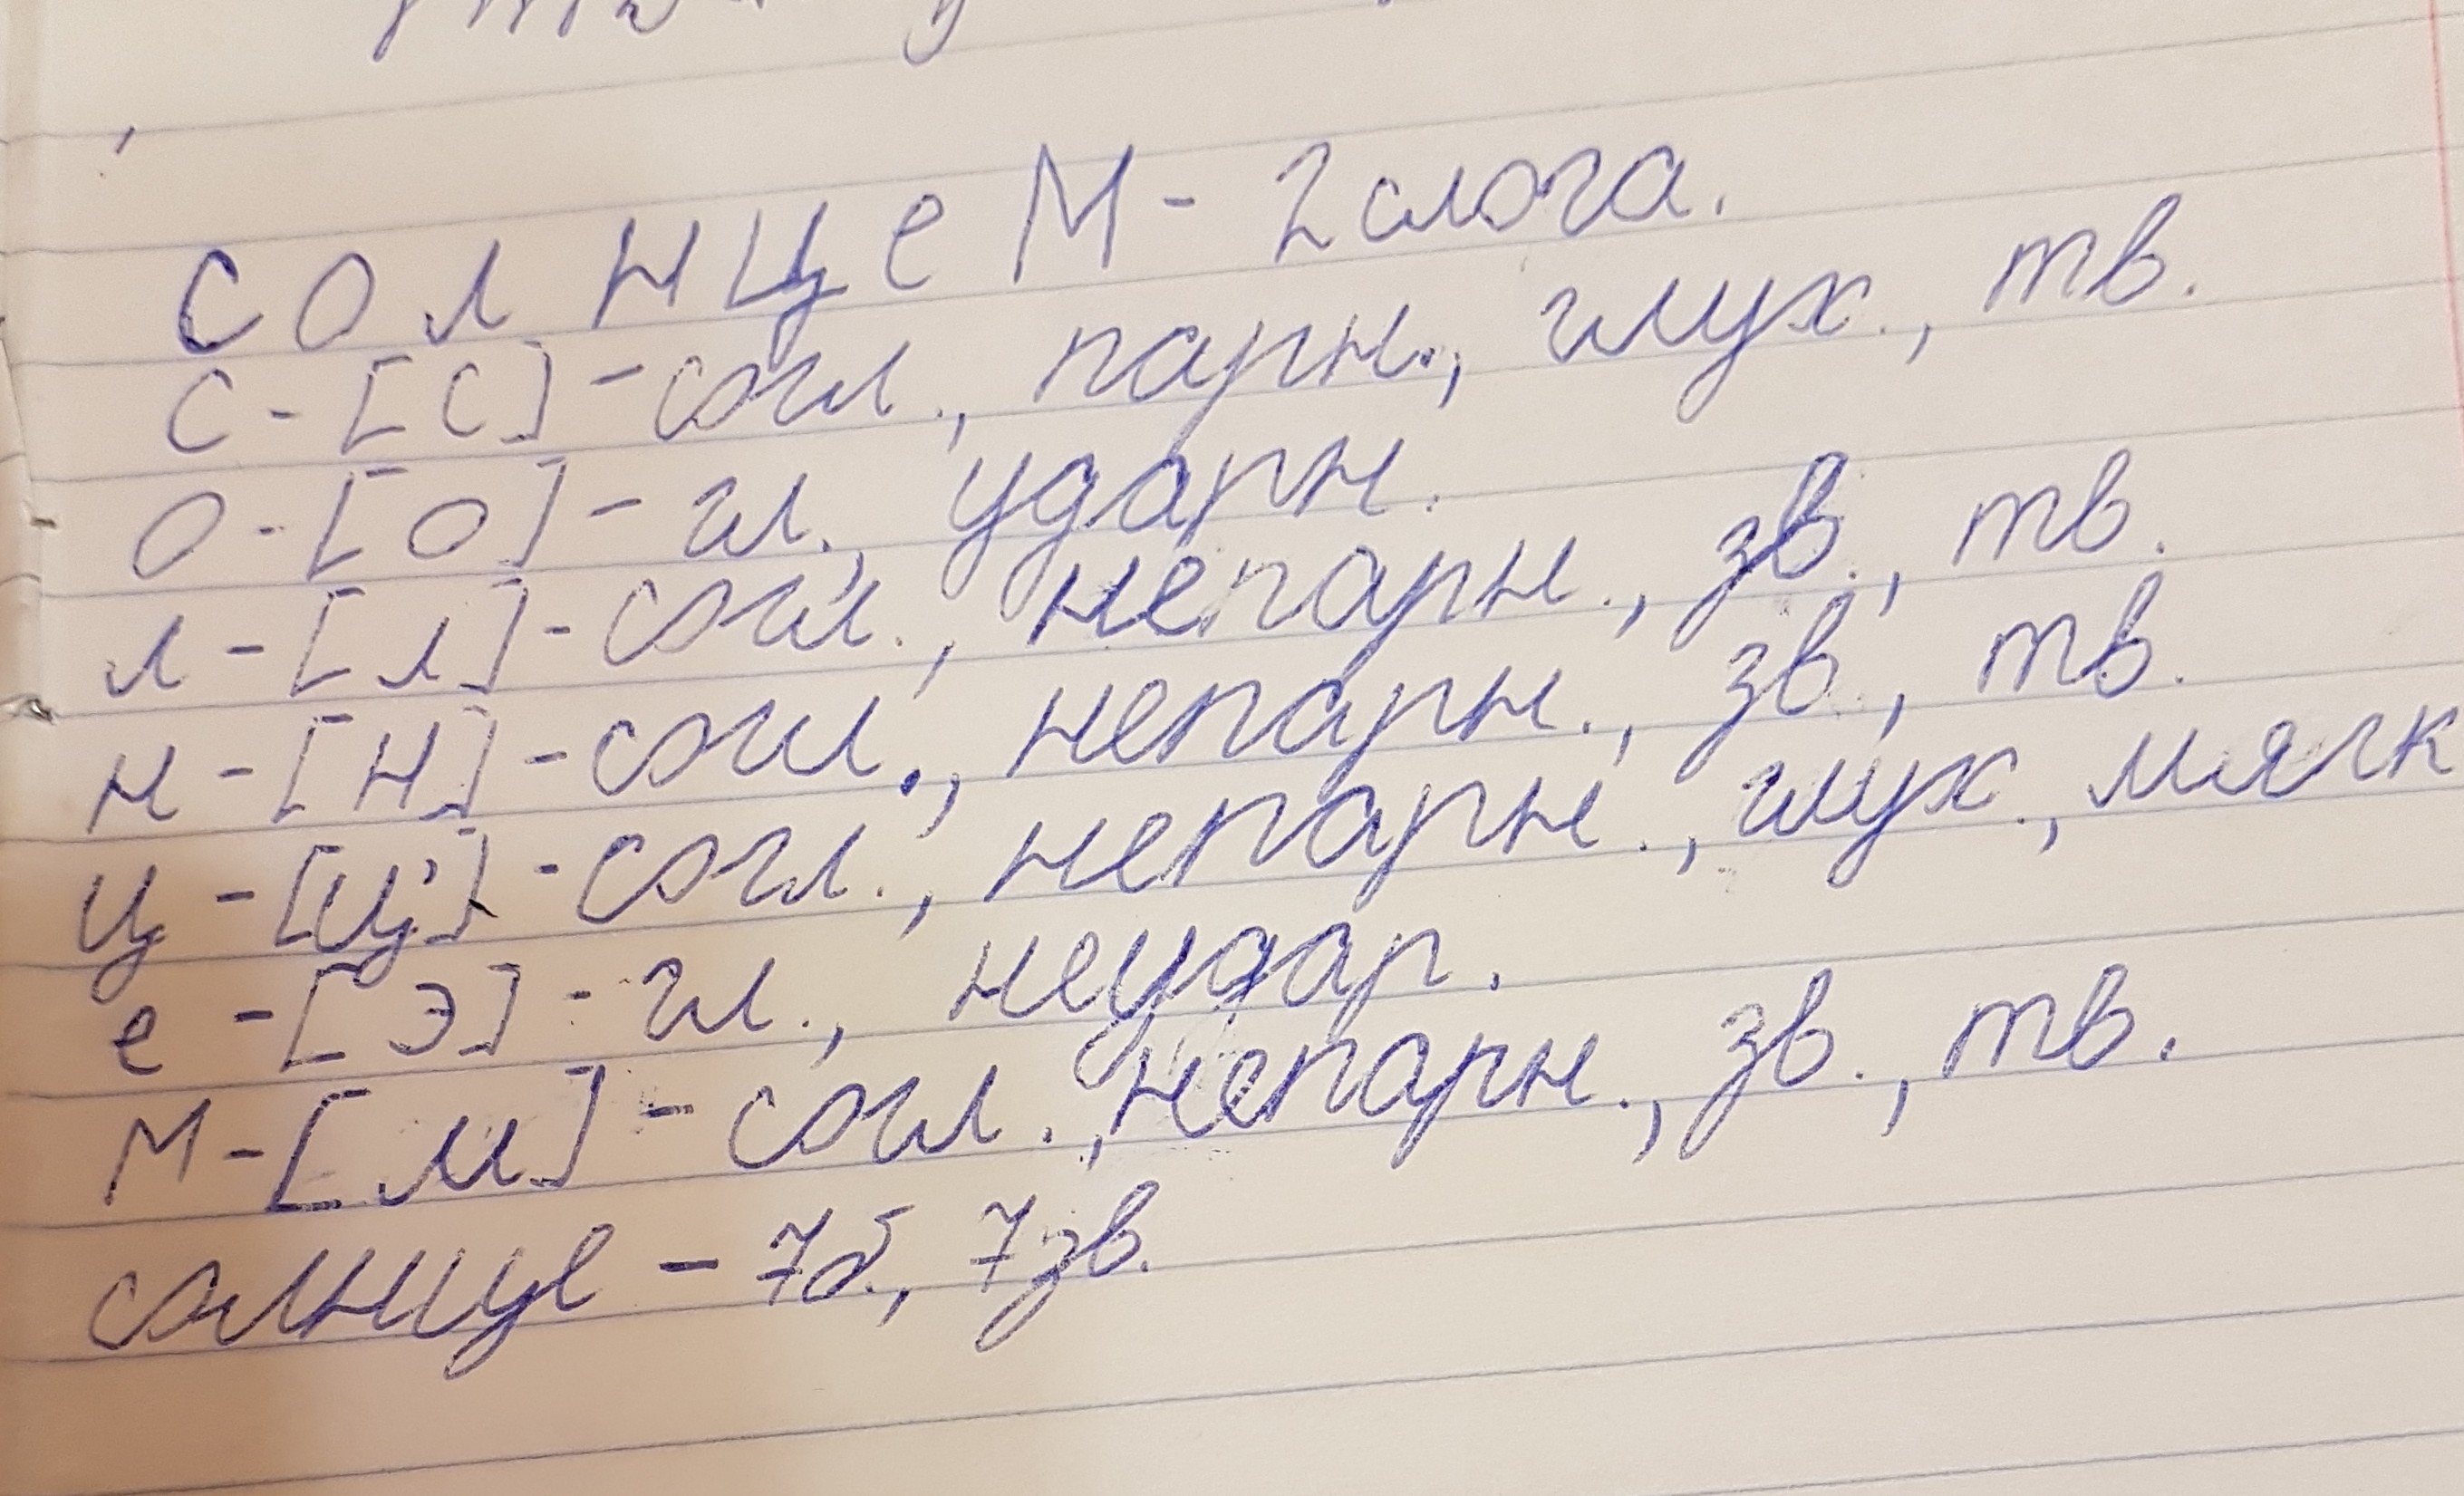 солнцем - 2 слога.
с - [с] - согл., парн., глух., тв.
о - [о] - гл., ударн.
л - [л] - согл., непарн., зв., тв.
н - [н] - согл., непарн., зв., тв.
ц - [ц'] - согл., непарн., глух., мягк
е - [э] - гл., неудар.
м - [м] - согл., непарн., зв., тв.
солнце - 7 б., 7 зв.